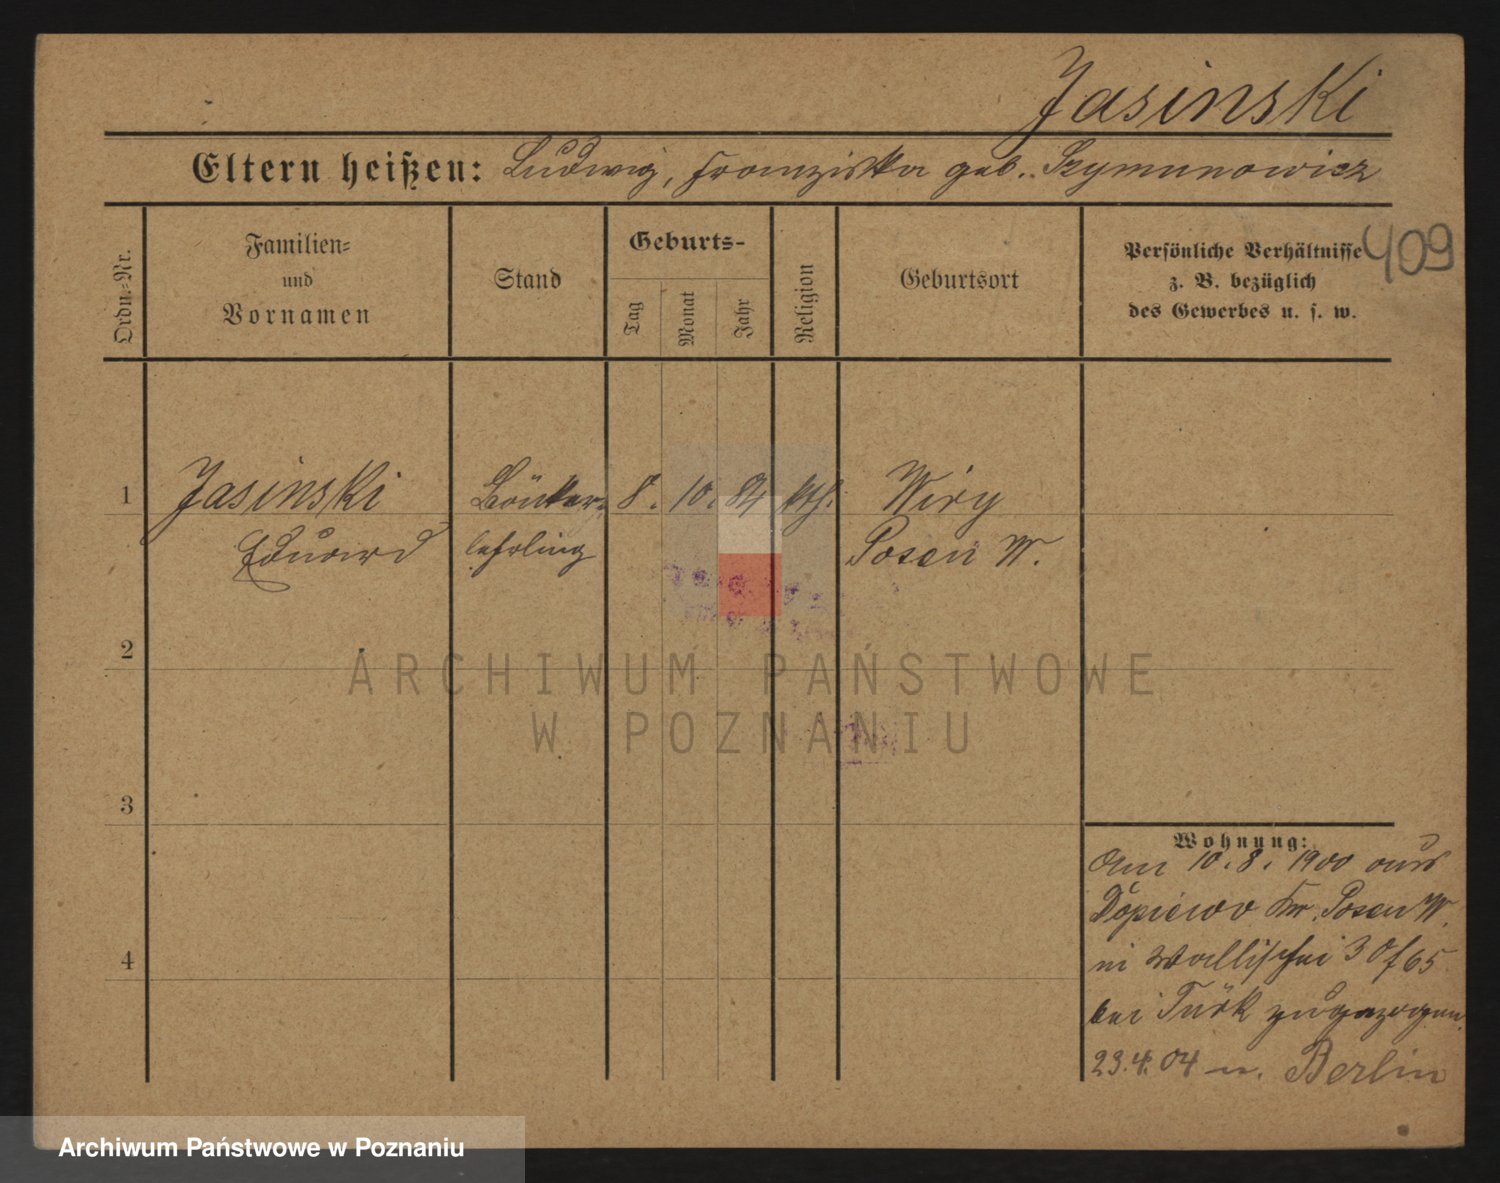 Jasinski
Eltern heißen: Ludwig, Franziska geb. Szymunowicz
409
Ordn.-Nr.
Familien-
und
Vornamen
Stand
Geburts-
Tag
Monat
Jahr
Religion
Geburtsort
Persönliche Verhältnisse
z. B. bezüglich
des Gewerbes u. s. w.
1
Jasinski
Eduard
lehrling
8. 10. 84 kth.
Wiry
Posen W.
2
ARCHIWUM PAŃSTWOWE
W POZNANIU
3
4
Wohnung:
Am 10.8.1900 aus
Dopiewo Kr. Posen W.
in Wallischei 30/65
bei Türk zugezogen
23.4.04 n. Berlin
Archiwum Państwowe w Poznaniu